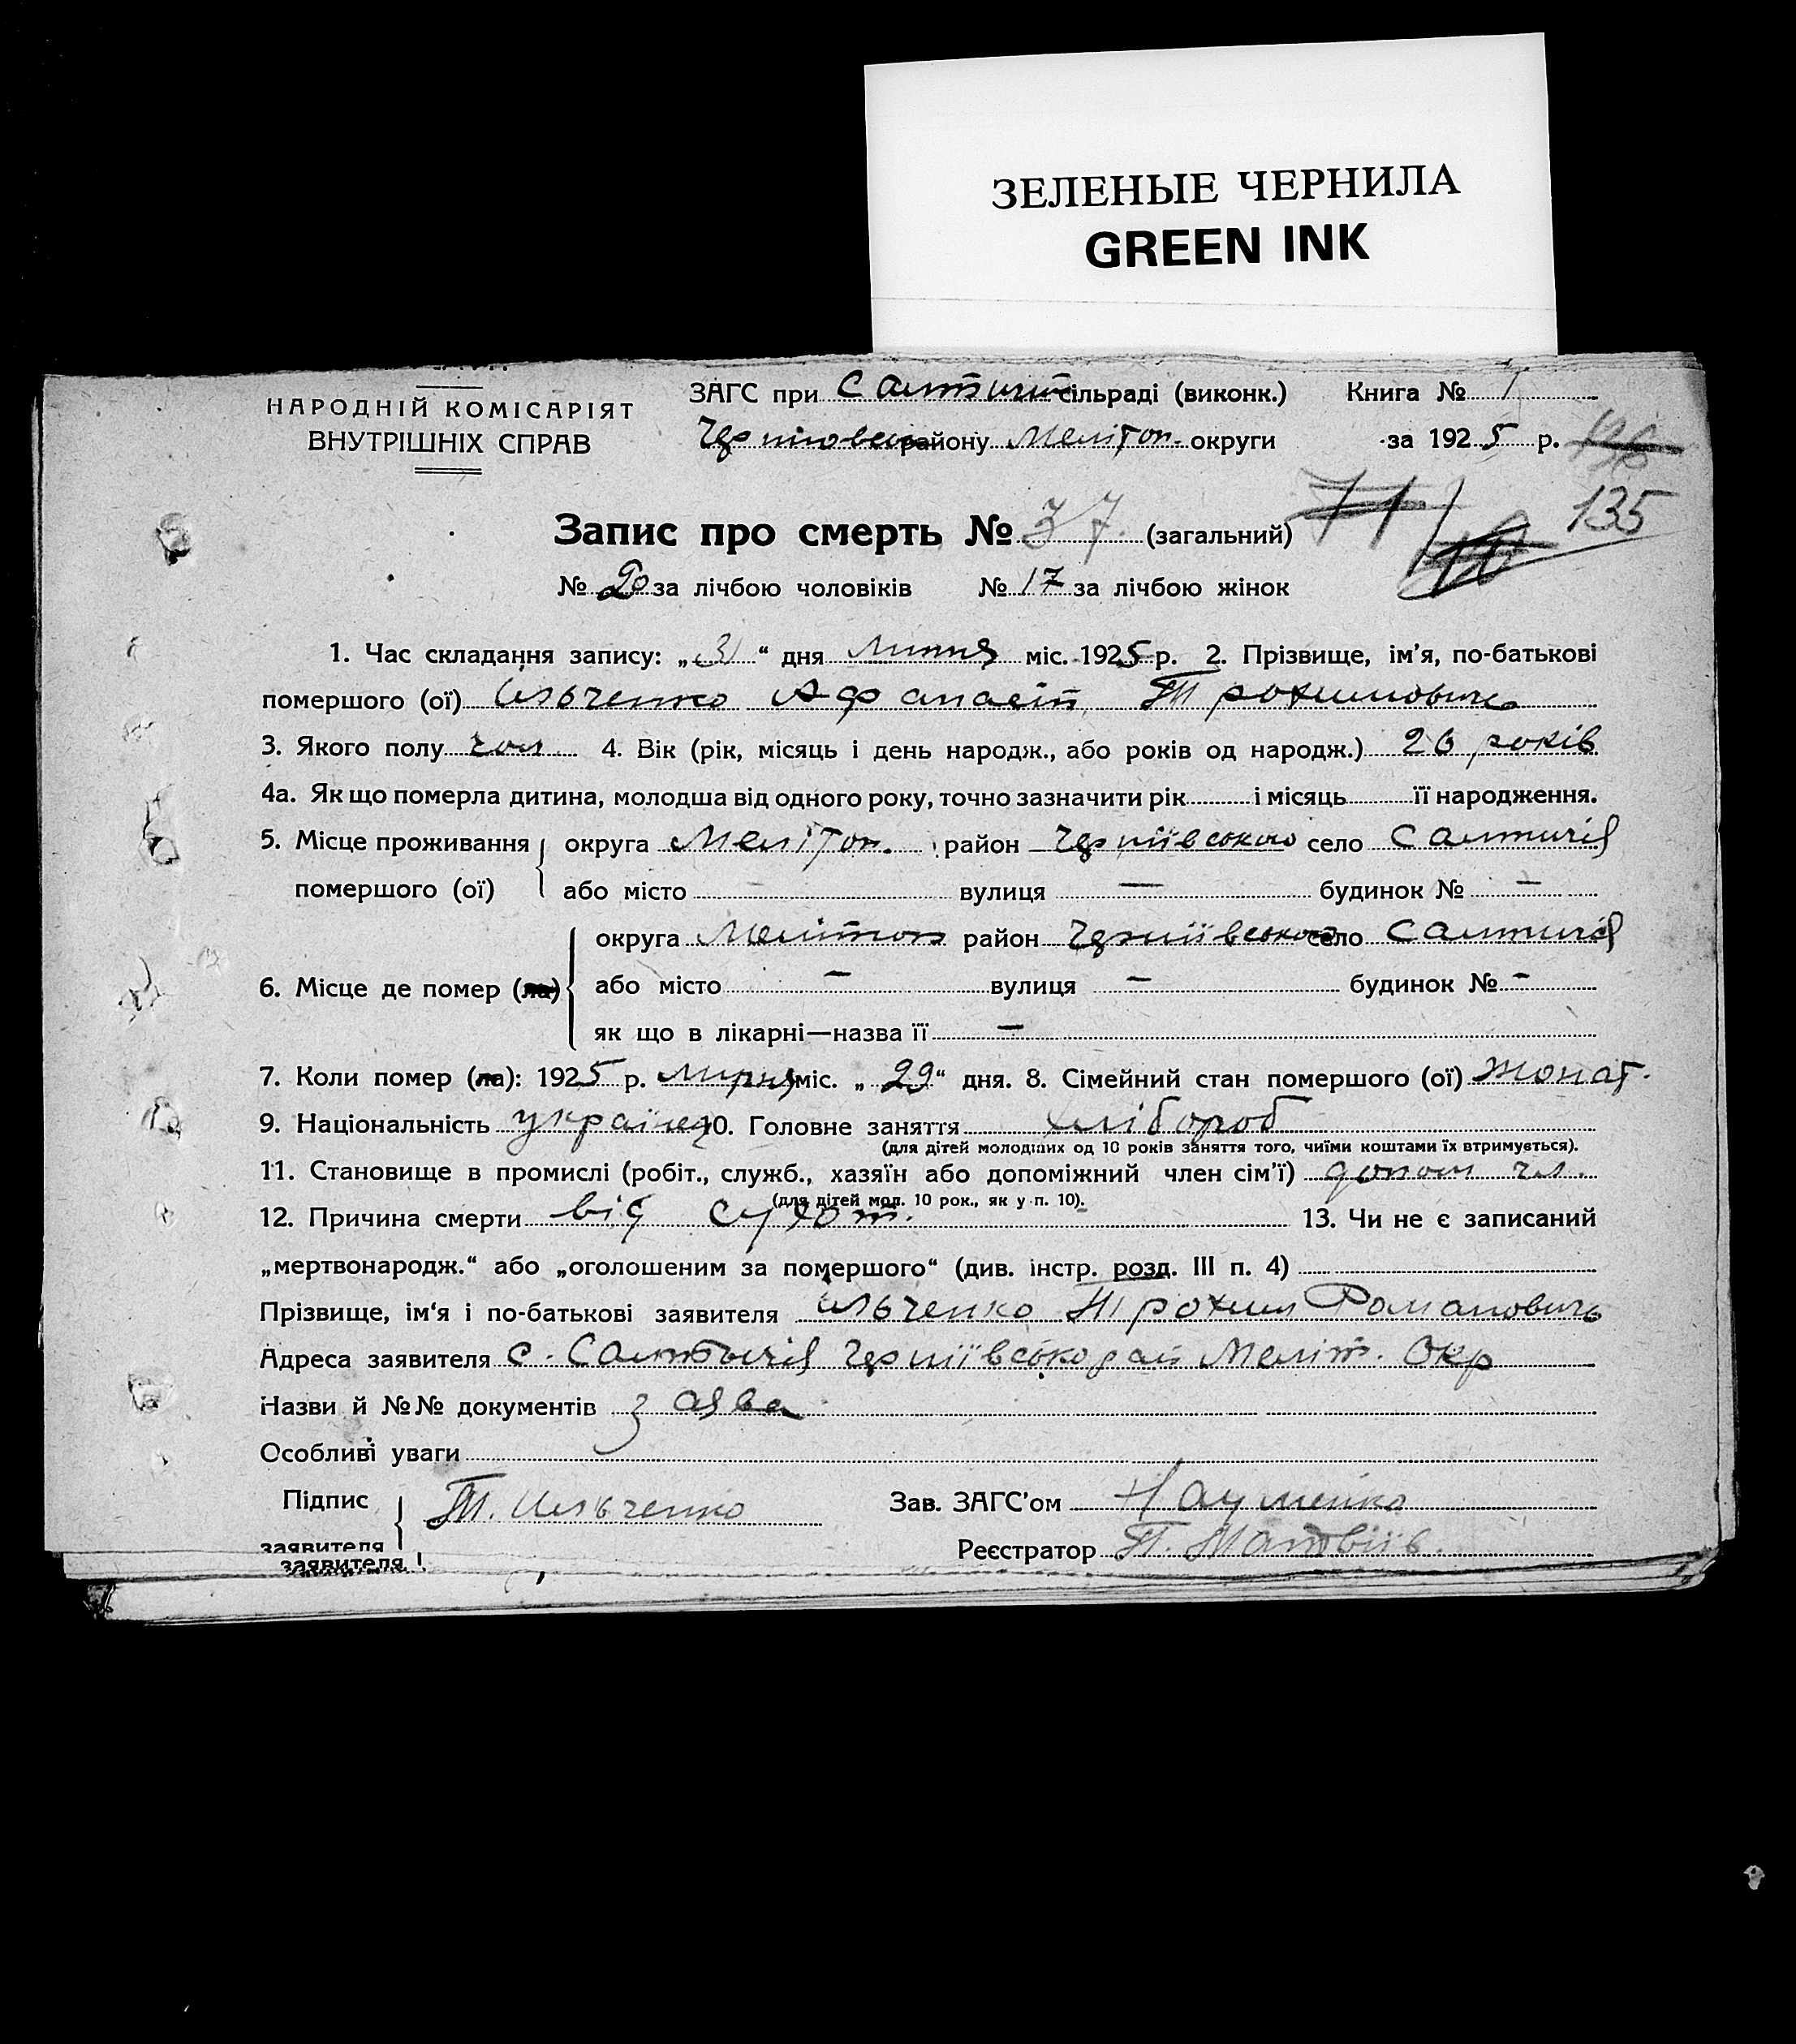 ЗЕЛЕНЫЕ ЧЕРНИЛА
GREEN INK
НАРОДНІЙ КОМІСАРІЯТ
ВНУТРІШНІХ СПРАВ
ЗАГС при сільраді (виконк.) Книга № 1
району Мелітоп. округи за 1925 р.
135
Запис про смерть № 37 (загальний) 71
№ 20 за лічбою чоловіків № 17 за лічбою жінок
1. Час складання запису: „31“ дня липня міс. 1925 р. 2. Прізвище, ім’я, по-батькові
помершого (ої) Ильченко Афанасій Трохимовичь
3. Якого полу чол. 4. Вік (рік, місяць і день народж., або років од народж.) 26 років
4а. Як що померла дитина, молодша від одного року, точно зазначити рік і місяць її народження.
5. Місце проживання округа Мелітоп. район Черніівського село Салтичія
помершого (ої) або місто — вулиця — будинок № —
округа Мелітоп район Черніівського село Салтичія
6. Місце де помер (ла) або місто — вулиця — будинок № —
як що в лікарні—назва її —
7. Коли помер (ла): 1925 р. липня міс. „29“ дня. 8. Сімейний стан помершого (ої) жонат.
9. Національність українец 10. Головне заняття хлібороб
(для дітей молодших од 10 років заняття того, чиїми коштами їх втримується).
11. Становище в промислі (робіт., служб., хазяїн або допоміжний член сім’ї) допом чл.
(для дітей мол. 10 рок., як у п. 10).
12. Причина смерти від сухот. 13. Чи не є записаний
„мертвонародж.“ або „оголошеним за помершого“ (див. інстр. розд. III п. 4)
Прізвище, ім‘я і по-батькові заявителя Ильченко Трохим Романовичь
Адреса заявителя с. Салтычія Черніівсько рай Меліт. Окр
Назви й №№ документів заява
Особливі уваги
Підпис Т. Ильченко Зав. ЗАГС’ом Науменко
заявителя Реєстратор П. Матвіів.
заявителя